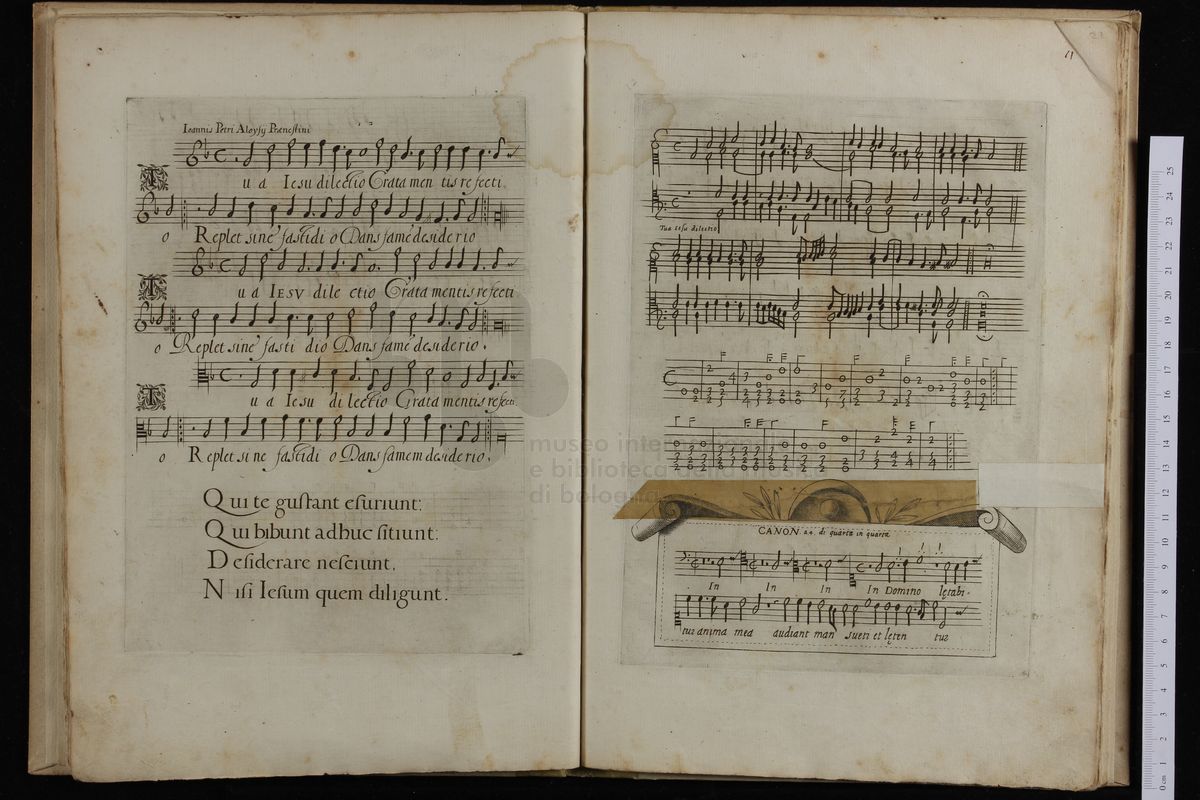 Ioannis Petri Aloysij Prænestini
T u a Iesu dilectio Grata men tis refecti
o Replet sine fastidi o Dans famé desiderio
T u a IESV dile ctio Grata mentis refecti
o Replet sine fasti dio Dans famé desiderio.
T u a Iesu di lectio Grata mentis refecti
o Replet si ne fastidi o Dans famem desiderio.
Qui te gustant esuriunt:
Qui bibunt adhuc sitiunt:
Desiderare nesciunt,
Nisi Iesum quem diligunt.
21
Tua iesu dilectio
CANON. a 4. di quarta in quarta
In In In In Domino lętabi-
tur anima mea audiant man sueti et lęten tur
museo inter
e biblioteca
di bologna
0 cm 1 2 3 4 5 6 7 8 9 10 11 12 13 14 15 16 17 18 19 20 21 22 23 24 25